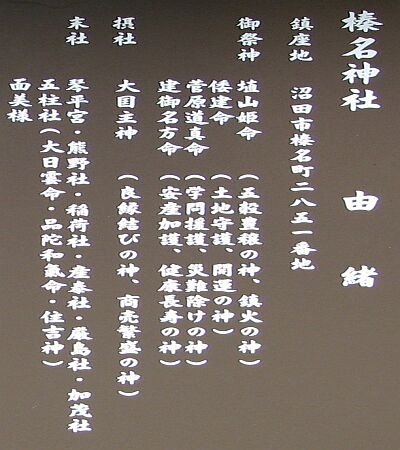 榛名神社　由緒
鎮座地　沼田市榛名町二八五一番地
御祭神　埴山姫命　（五穀豊穣の神、鎮火の神）
倭建命　（土地守護、開運の神）
菅原道真命　（学問援護、災難除けの神）
建御名方命　（安産加護、健康長寿の神）
摂社　大国主神　（良縁結びの神、商売繁盛の神）
末社　琴平宮・熊野社・稲荷社・産泰社・厳島社・加茂社
五柱社（大日霊命・品陀和氣命・住吉神）
面美様